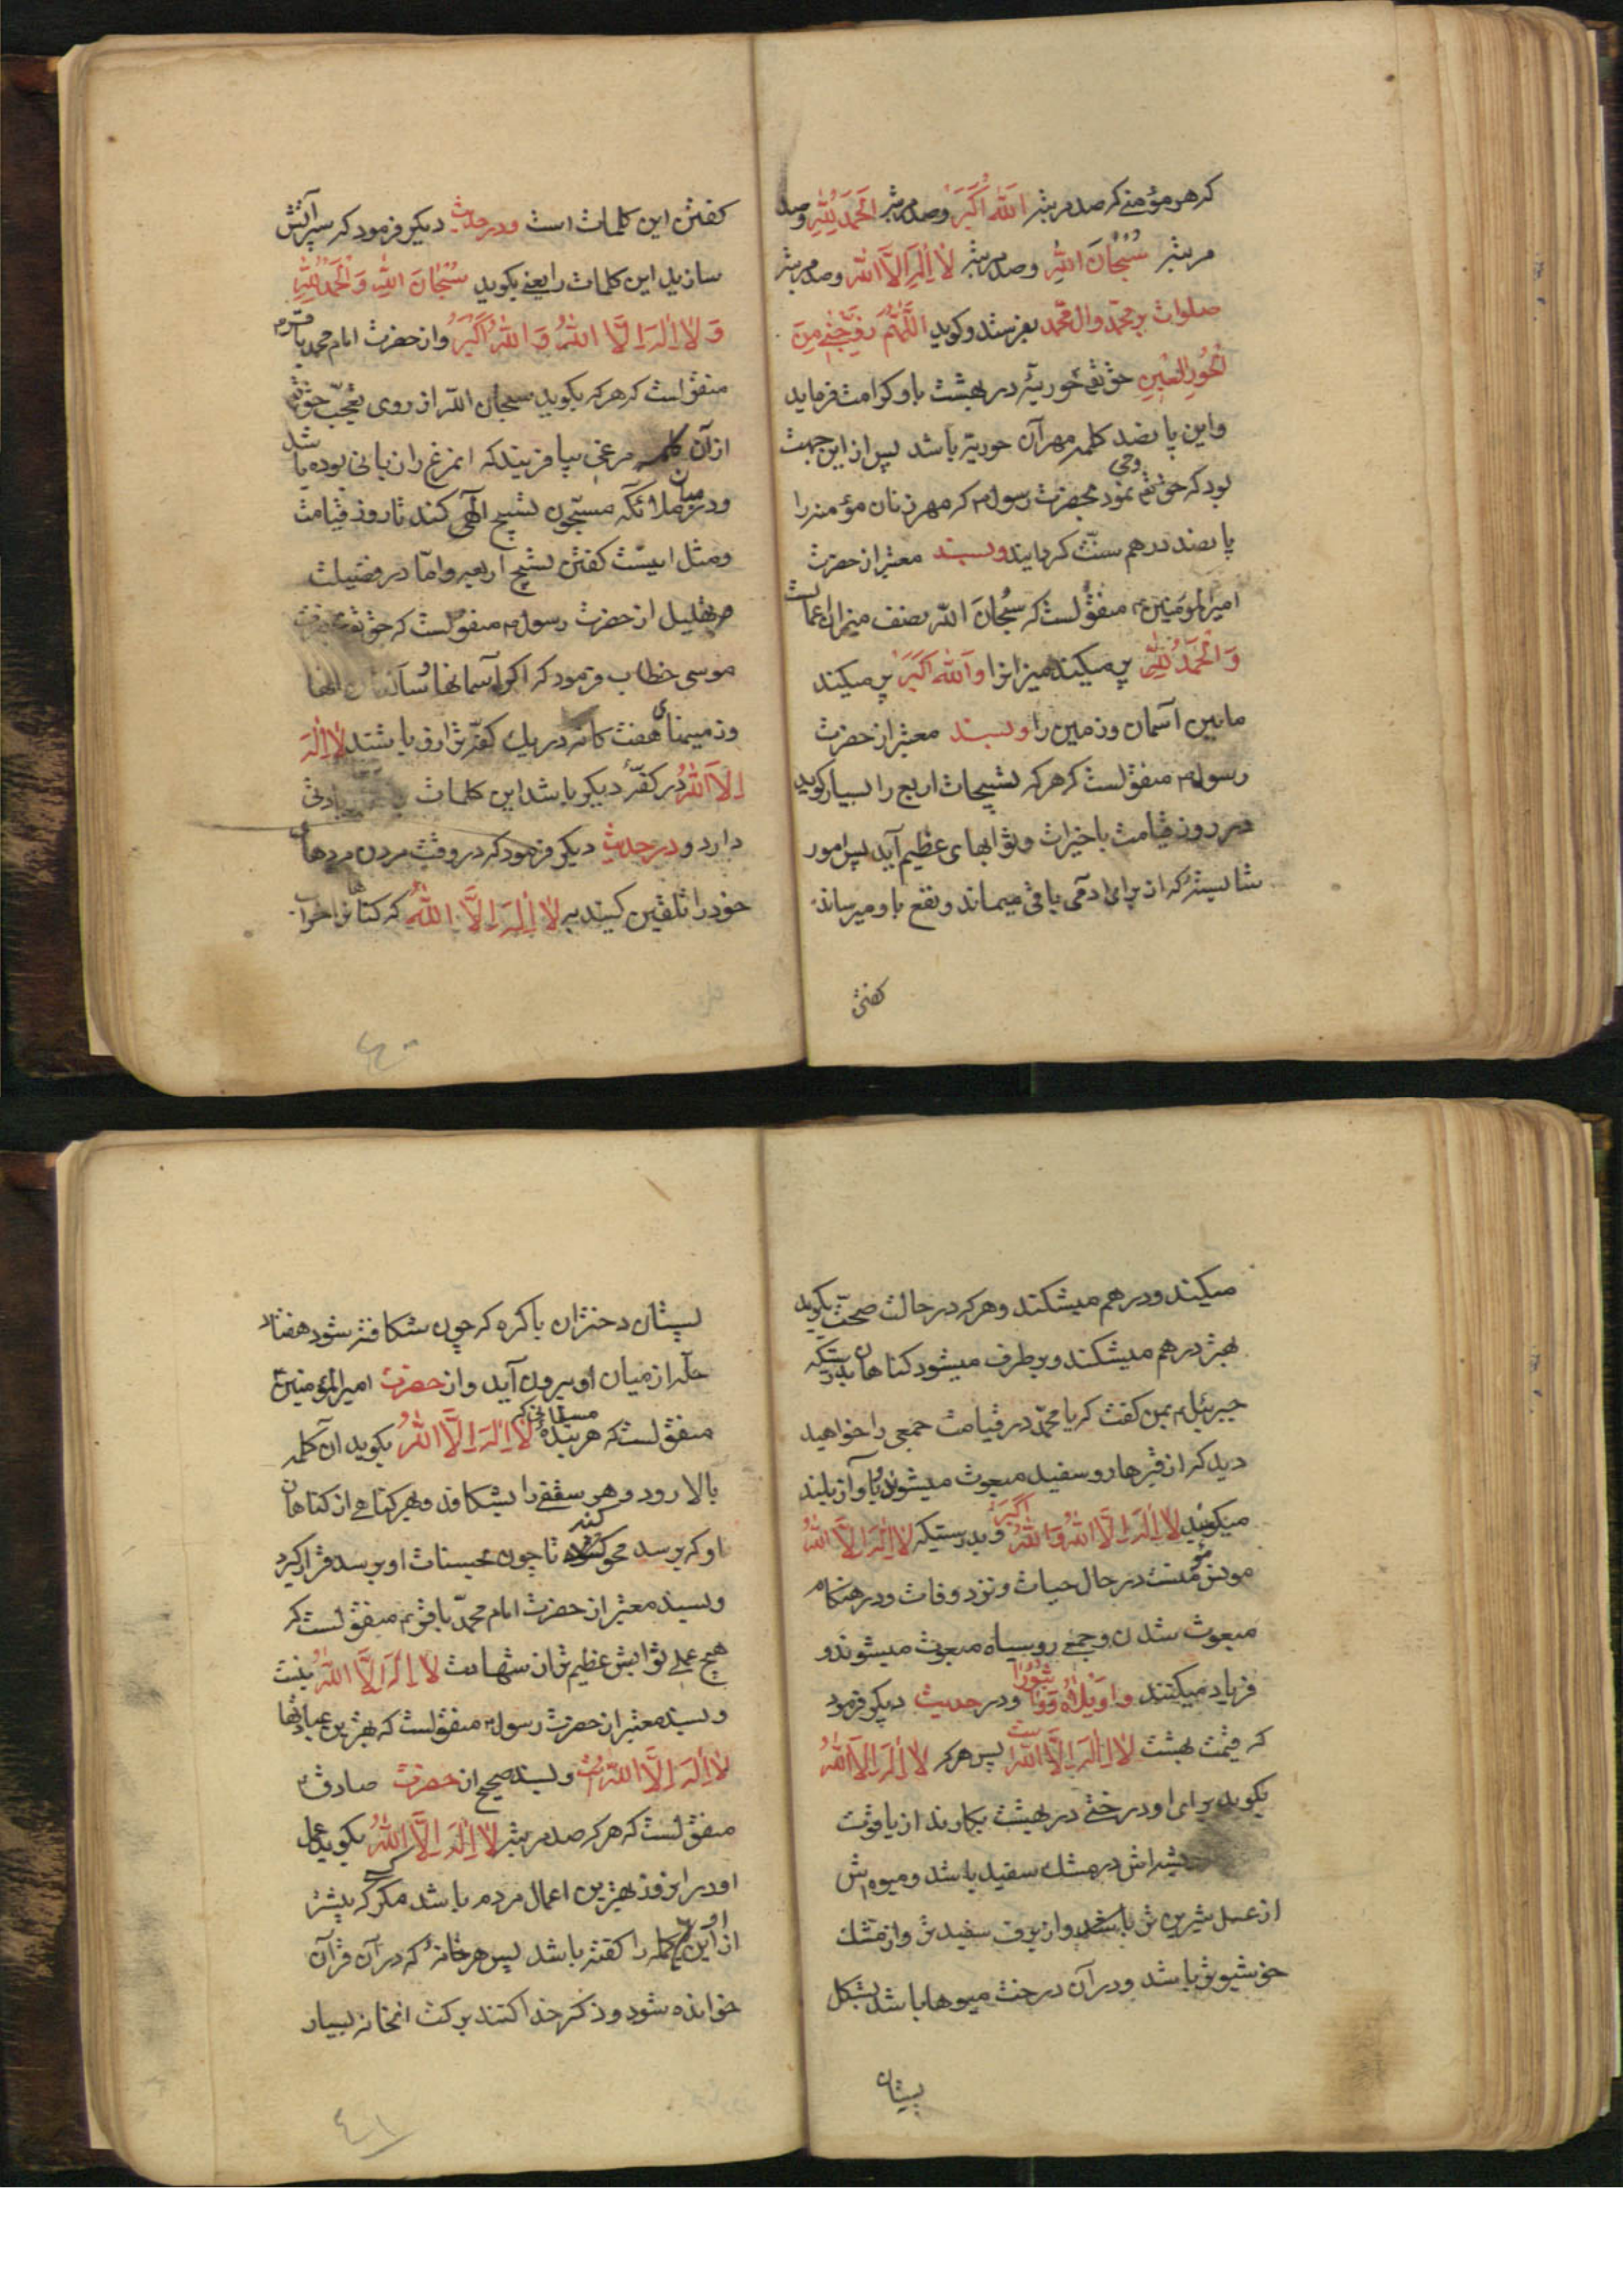 که هر مؤمنی که صد مرتبه اَللّٰهُ اَکْبَرُ وصد مرتبه اَلْحَمْدُ لِلّٰهِ وصد
مرتبه سُبْحانَ اللّٰهِ وصد مرتبه لا اِلٰهَ اِلَّا اللّٰه وصد مرتبه
صلوات بر محمد وال محمد بفرستد وکوید اَللّٰهُمَّ زَوِّجْنی مِنَ
الْحُورِ الْعینِ حق تعم حوریهٔ در بهشت باو کرامت فرماید
واین پانصد کلمه مهر آن حوریه باشد پس از این جهت
بود که حق تعم وحی نمود بحضرت رسول م که مهر زنان مؤمنه را
پانصد درهم سنّت کردانید وبسند معتبر از حضرت
امیر المؤمنین ع منقولست که سُبحانَ اللّه نصف میزان اعمالست
وَ الْحَمْدُ لِلّٰهِ پر میکند میزانرا وَاللّٰهُ اَکْبَرُ پر میکند
مابین آسمان وزمین را وبسند معتبر از حضرت
رسول م منقولست که هرکه تسبیحات اربع را بسیار کوید
در روز قیامت باخیرات وثوابهای عظیم آید پس امور
شایسته که از برای ادمی باقی میماند ونفع باو میرساند
کفتن
کفتن این کلمات است ودر حدیث دیکر فرمود که سپر آتش
سازید این کلمات را یعنی بکوید سُبْحانَ اللّٰهِ وَ الْحَمْدُ لِلّٰهِ
وَ لا اِلٰهَ اِلَّا اللّٰهُ وَ اللّٰهُ اَکْبَرُ واز حضرت امام محمد باقر م
منقول است که هر که بکوید سبحان اللّه از روی تعجّب حق تعم
از آن کلمه مرغی بیافریند که انمرغ را زبانی بوده باشد
ودر میان ملائکه مسبّحون تسبیح آلهی کند تا روز قیامت
ومثل اینست کفتن تسبیح اربعه وامّا در فضیلت
تهلیل از حضرت رسول م منقولست که حق تعم بحضرت
موسی خطاب فرمود که اکر آسمانها وساکنان انها
وزمینهای هفت کانه در یک کفّه ترازو باشند لا اِلٰهَ
اِلَّا اللّٰهُ در کفّهٔ دیکر باشد این کلمات زیادتی
دارد ودر حدیث دیکر فرمود که در وقت مردن مردهای
خود را تلقین کنید به لا اِلٰهَ اِلَّا اللّٰهُ که کناهانرا خراب
۶۰
میکند ودر هم میشکند وهر که در حالت صحّت بکوید
بهتر در هم میشکند وبر طرف میشود کناهان بدرستیکه
جبرئیل م بمن کفت که یا محمّد در قیامت جمعی را خواهید
دید که از قبرها رو سفید مبعوث میشوند وبآواز بلند
میکویند لا اِلٰهَ اِلَّا اللّٰهُ وَ اللّٰهُ اَکْبَرُ وبدرستیکه لا اِلٰهَ اِلَّا اللّٰهُ
مونس مؤمنست در حال حیات ونزد وفات ودر هنکام
مبعوث شدن وجمعی روسیاه مبعوث میشوند و
فریاد میکنند واوَیْلاهُ وَوا ثُبُوراً ودر حدیث دیکر فرمود
که قیمت بهشت لا اِلٰهَ اِلَّا اللّٰهُ است پس هر که لا اِلٰهَ اِلَّا اللّٰهُ
بکوید برای او درختی در بهشت بکارند از یاقوت
ریشه‌اش در مشک سفید باشد ومیوه‌اش
از عسل شیرین تر باشد واز برف سفید تر واز مشک
خوشبوتر باشد ودر آن درخت میوها باشد بشکل
پستان
پستان دختران باکره که چون شکافته شود هفتاد
حلّه از میان او بیرون آید واز حضرت امیر المؤمنین ع
منقولست که هر بندهٔ مسلمانی که لا اِلٰهَ اِلَّا اللّٰهُ بکوید ان کلمه
بالا رود وهر سقفی را بشکافد وبهر کناهی از کناهان
او که برسد محو کند تا چون بحسنات او برسد قرار کیرد
وبسند معتبر از حضرت امام محمّد باقر م منقولست که
هیچ عملی ثوابش عظیم تر از شهادت لا اِلٰهَ اِلَّا اللّٰهُ نیست
وبسند معتبر از حضرت رسول م منقولست که بهترین عبادتها
لا اِلٰهَ اِلَّا اللّٰهُ است وبسند صحیح از حضرت صادق م
منقولست که هر که صد مرتبه لا اِلٰهَ اِلَّا اللّٰهُ بکوید عمل
او در ان روز بهترین اعمال مردم باشد مکر کسی که بیشتر
از او این کلمه را کفته باشد پس هر خانهٔ که در آن قرآن
خوانده شود وذکر خدا کنند برکت انخانه بسیار
۶۱